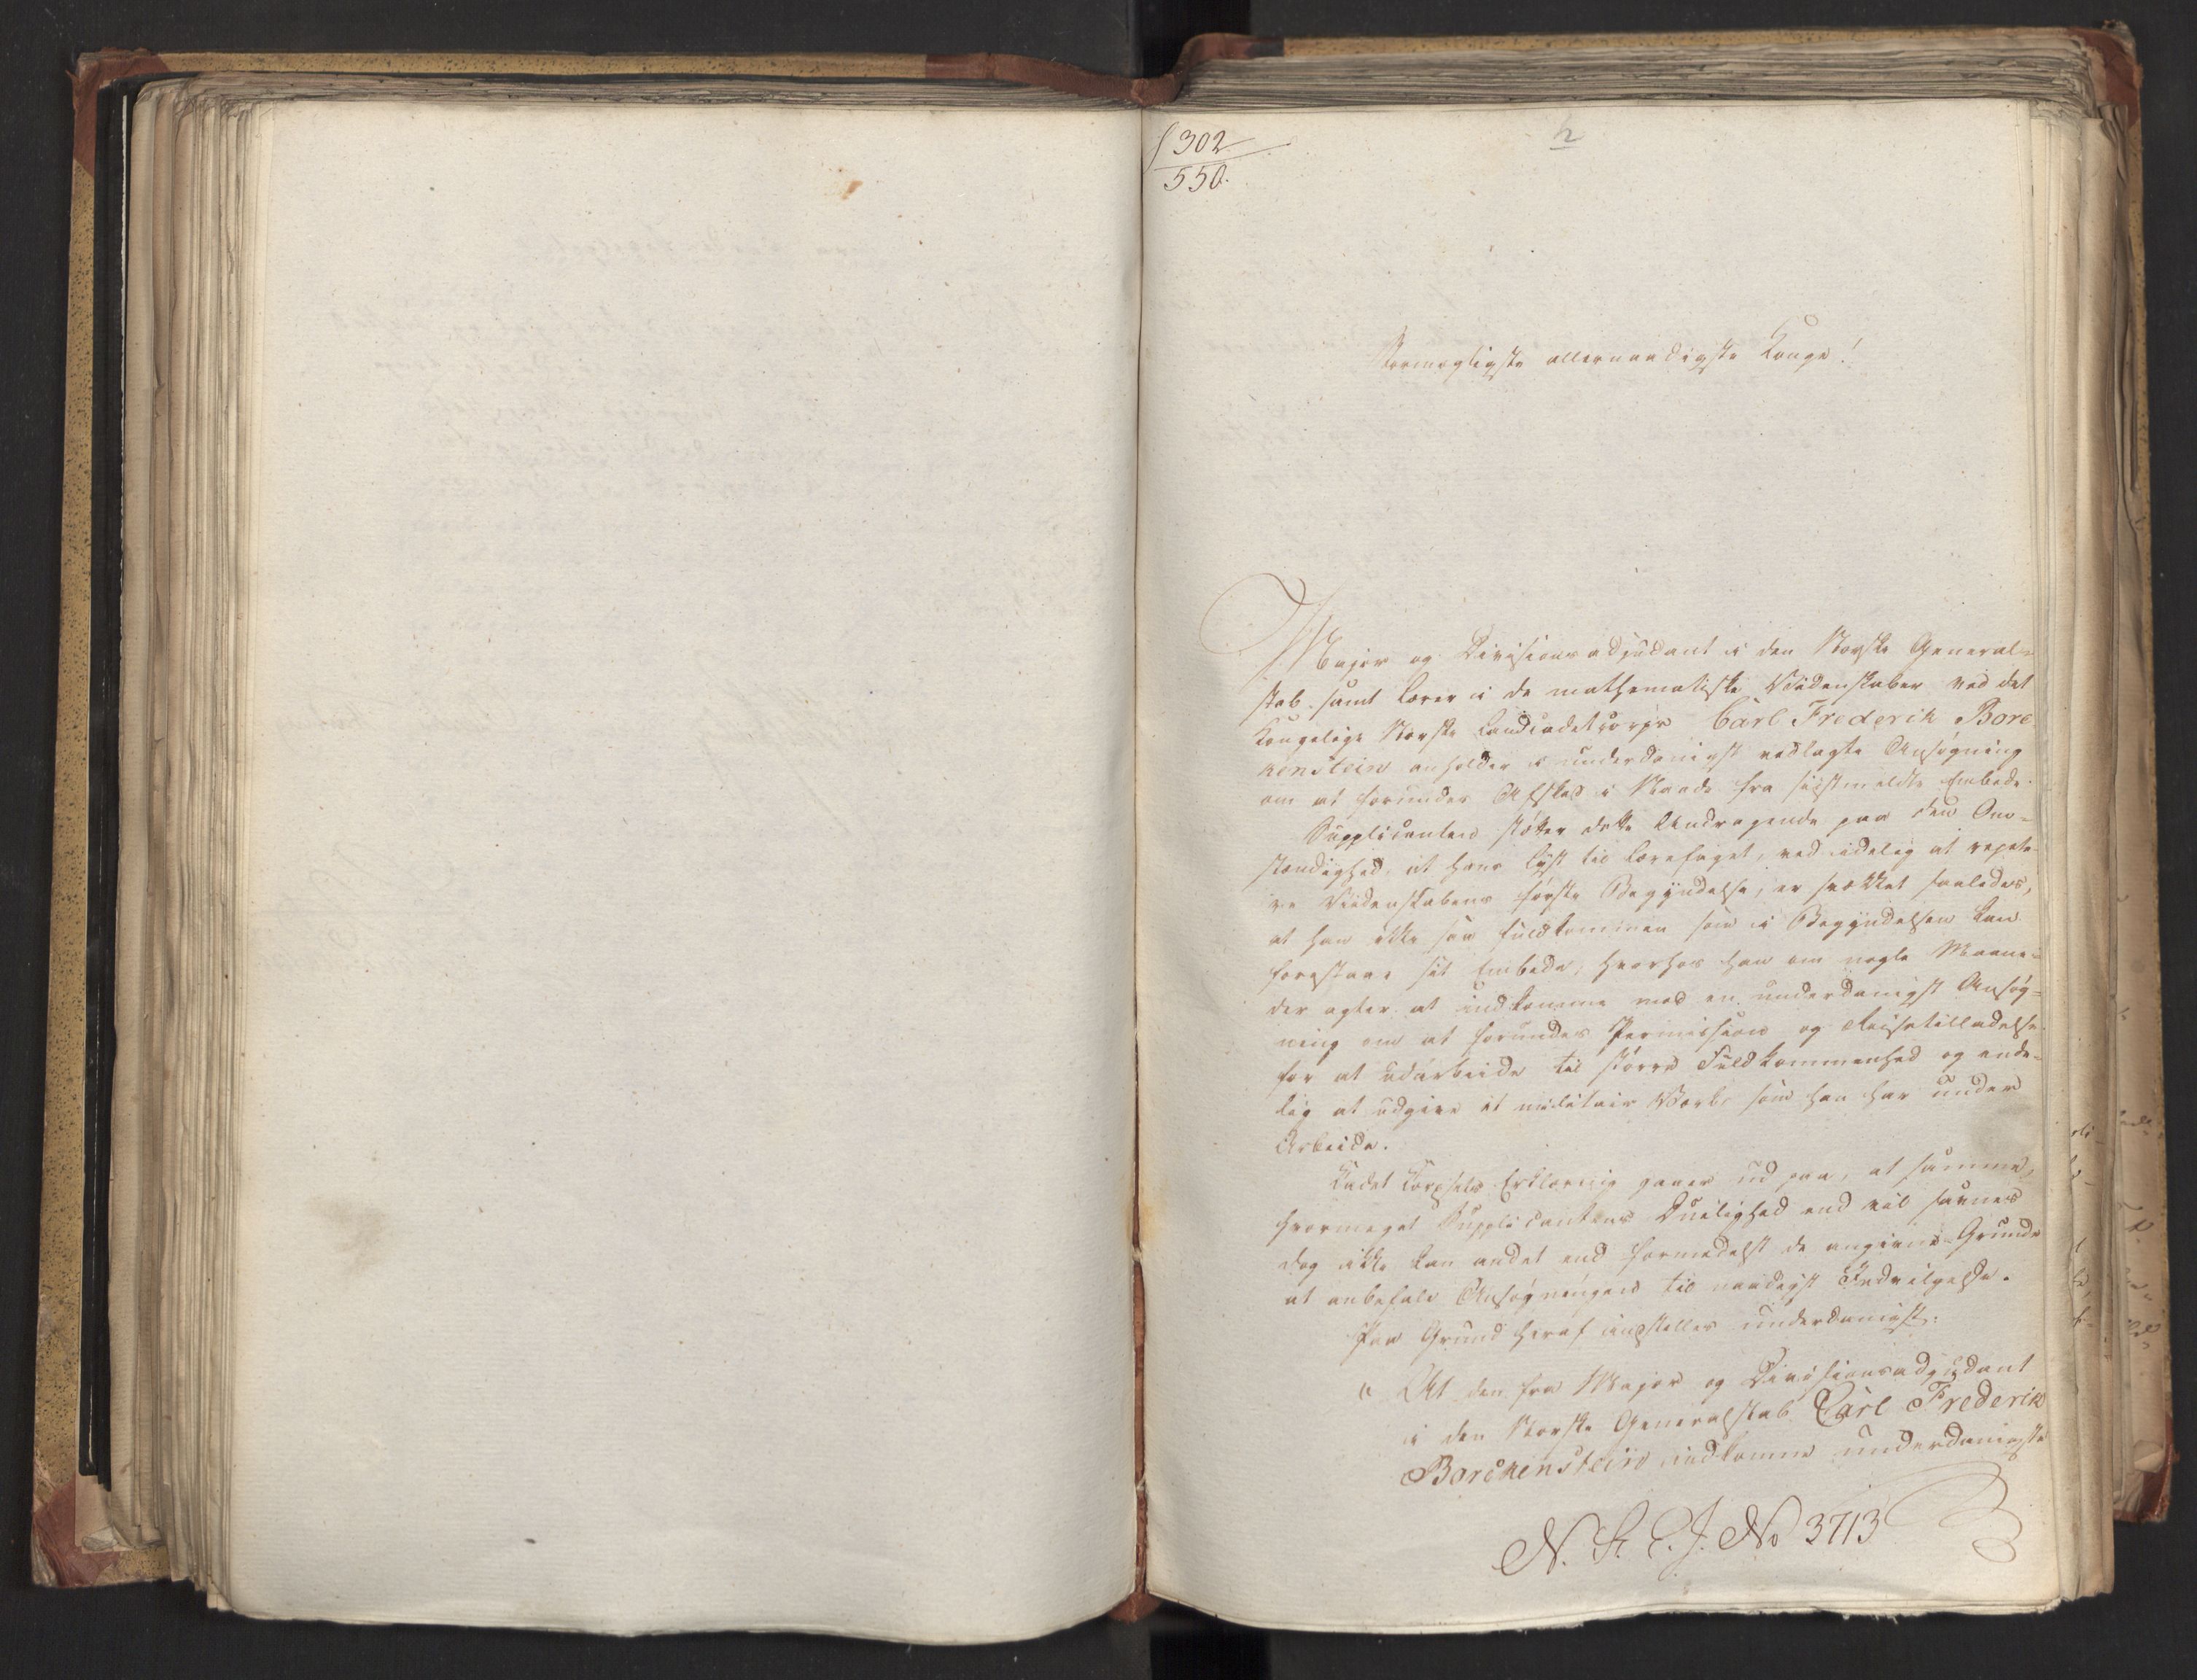 302
550.
2
Stormægtigste allernaadigste Konge!
Major og Divisionsadjudant i den Norske General-
stab samt Lærer i de mathematiske Videnskaber ved det
Kongelige Norske Landcadetcorps Carl Frederik Borc
kenstein anholder i underdanigst vedlagte Ansøgning
om at forundes Afsked i Naade fra sidstmeldte Embede.
Supplicanten støtter dette Andragende paa den Om-
stændighed, at hans Lyst til Lærefaget, ved idelig at repete-
re Videnskabens første Begyndelse, er svækket saaledes,
at han ikke saa fuldkommen som i Begyndelsen kan
forestaae sit Embede, hvorhos han om nogle Maane-
der agter at indkomme med en underdanigst Ansøg-
ning om at forundes Permission og Reisetilladelse
for at udarbeide til større Fuldkommenhed og ende-
lig at udgive et militair Værk, som han har under
Arbeide.
Cadet Corpsets Erklæring gaaer ud paa, at samme,
hvormeget Supplicantens Duelighed end vil savnes
dog ikke kan andet end formedelst de angivne Grunde
at anbefale Ansøgningen til naadigst Indvilgelse.
Paa Grund heraf indstilles underdanigst:
"At den fra Major og Divisionsadjudant
i den Norske Generalstab Carl Frederik
Borckenstein indkomne underdanigste
N. St. C. J. No 3713